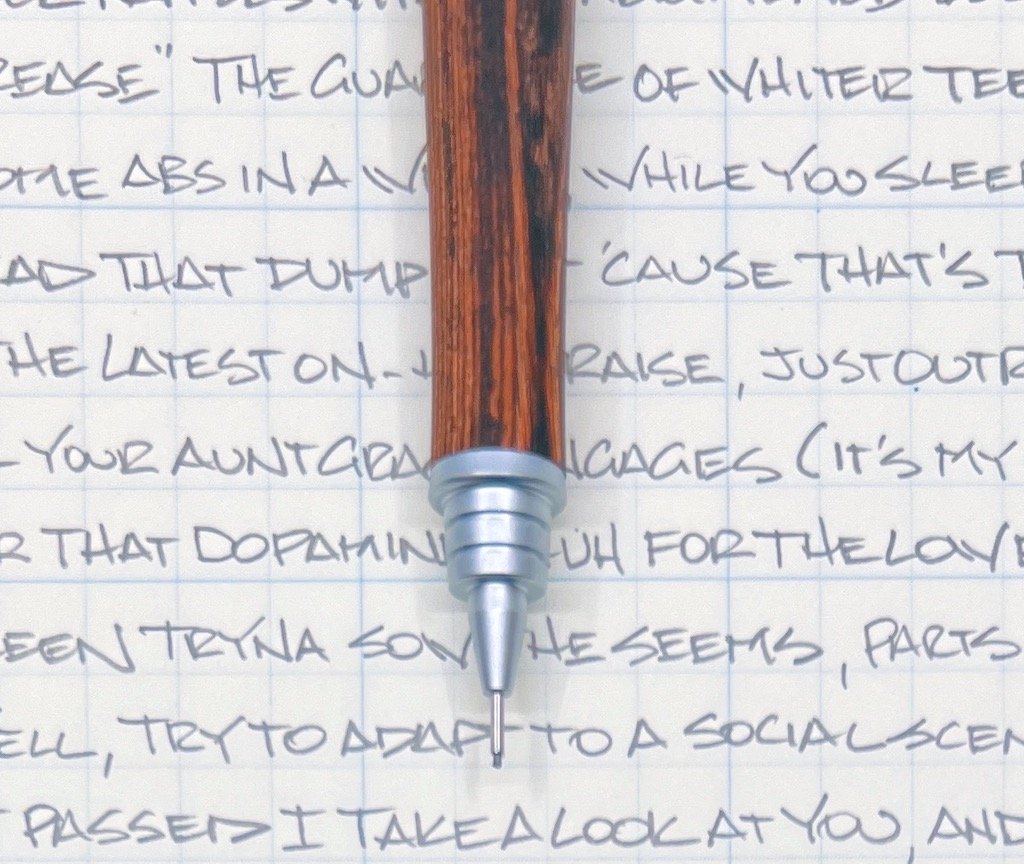 " THE OF WHITER
ABS IN A WHILE YOU SLEEP
THAT DUMP 'CAUSE THAT'S
THE LATEST ON- RAISE, JUST OUTR
YOUR AUNT GRA NGAGES (IT'S MY
THAT DOPAMIN UH FOR THE LOVE
EEN TRYNA SOW THE SEEMS, PARTS
ELL, TRY TO ADAPT TO A SOCIAL SCEN
PASSED I TAKE A LOOK AT YOU AND